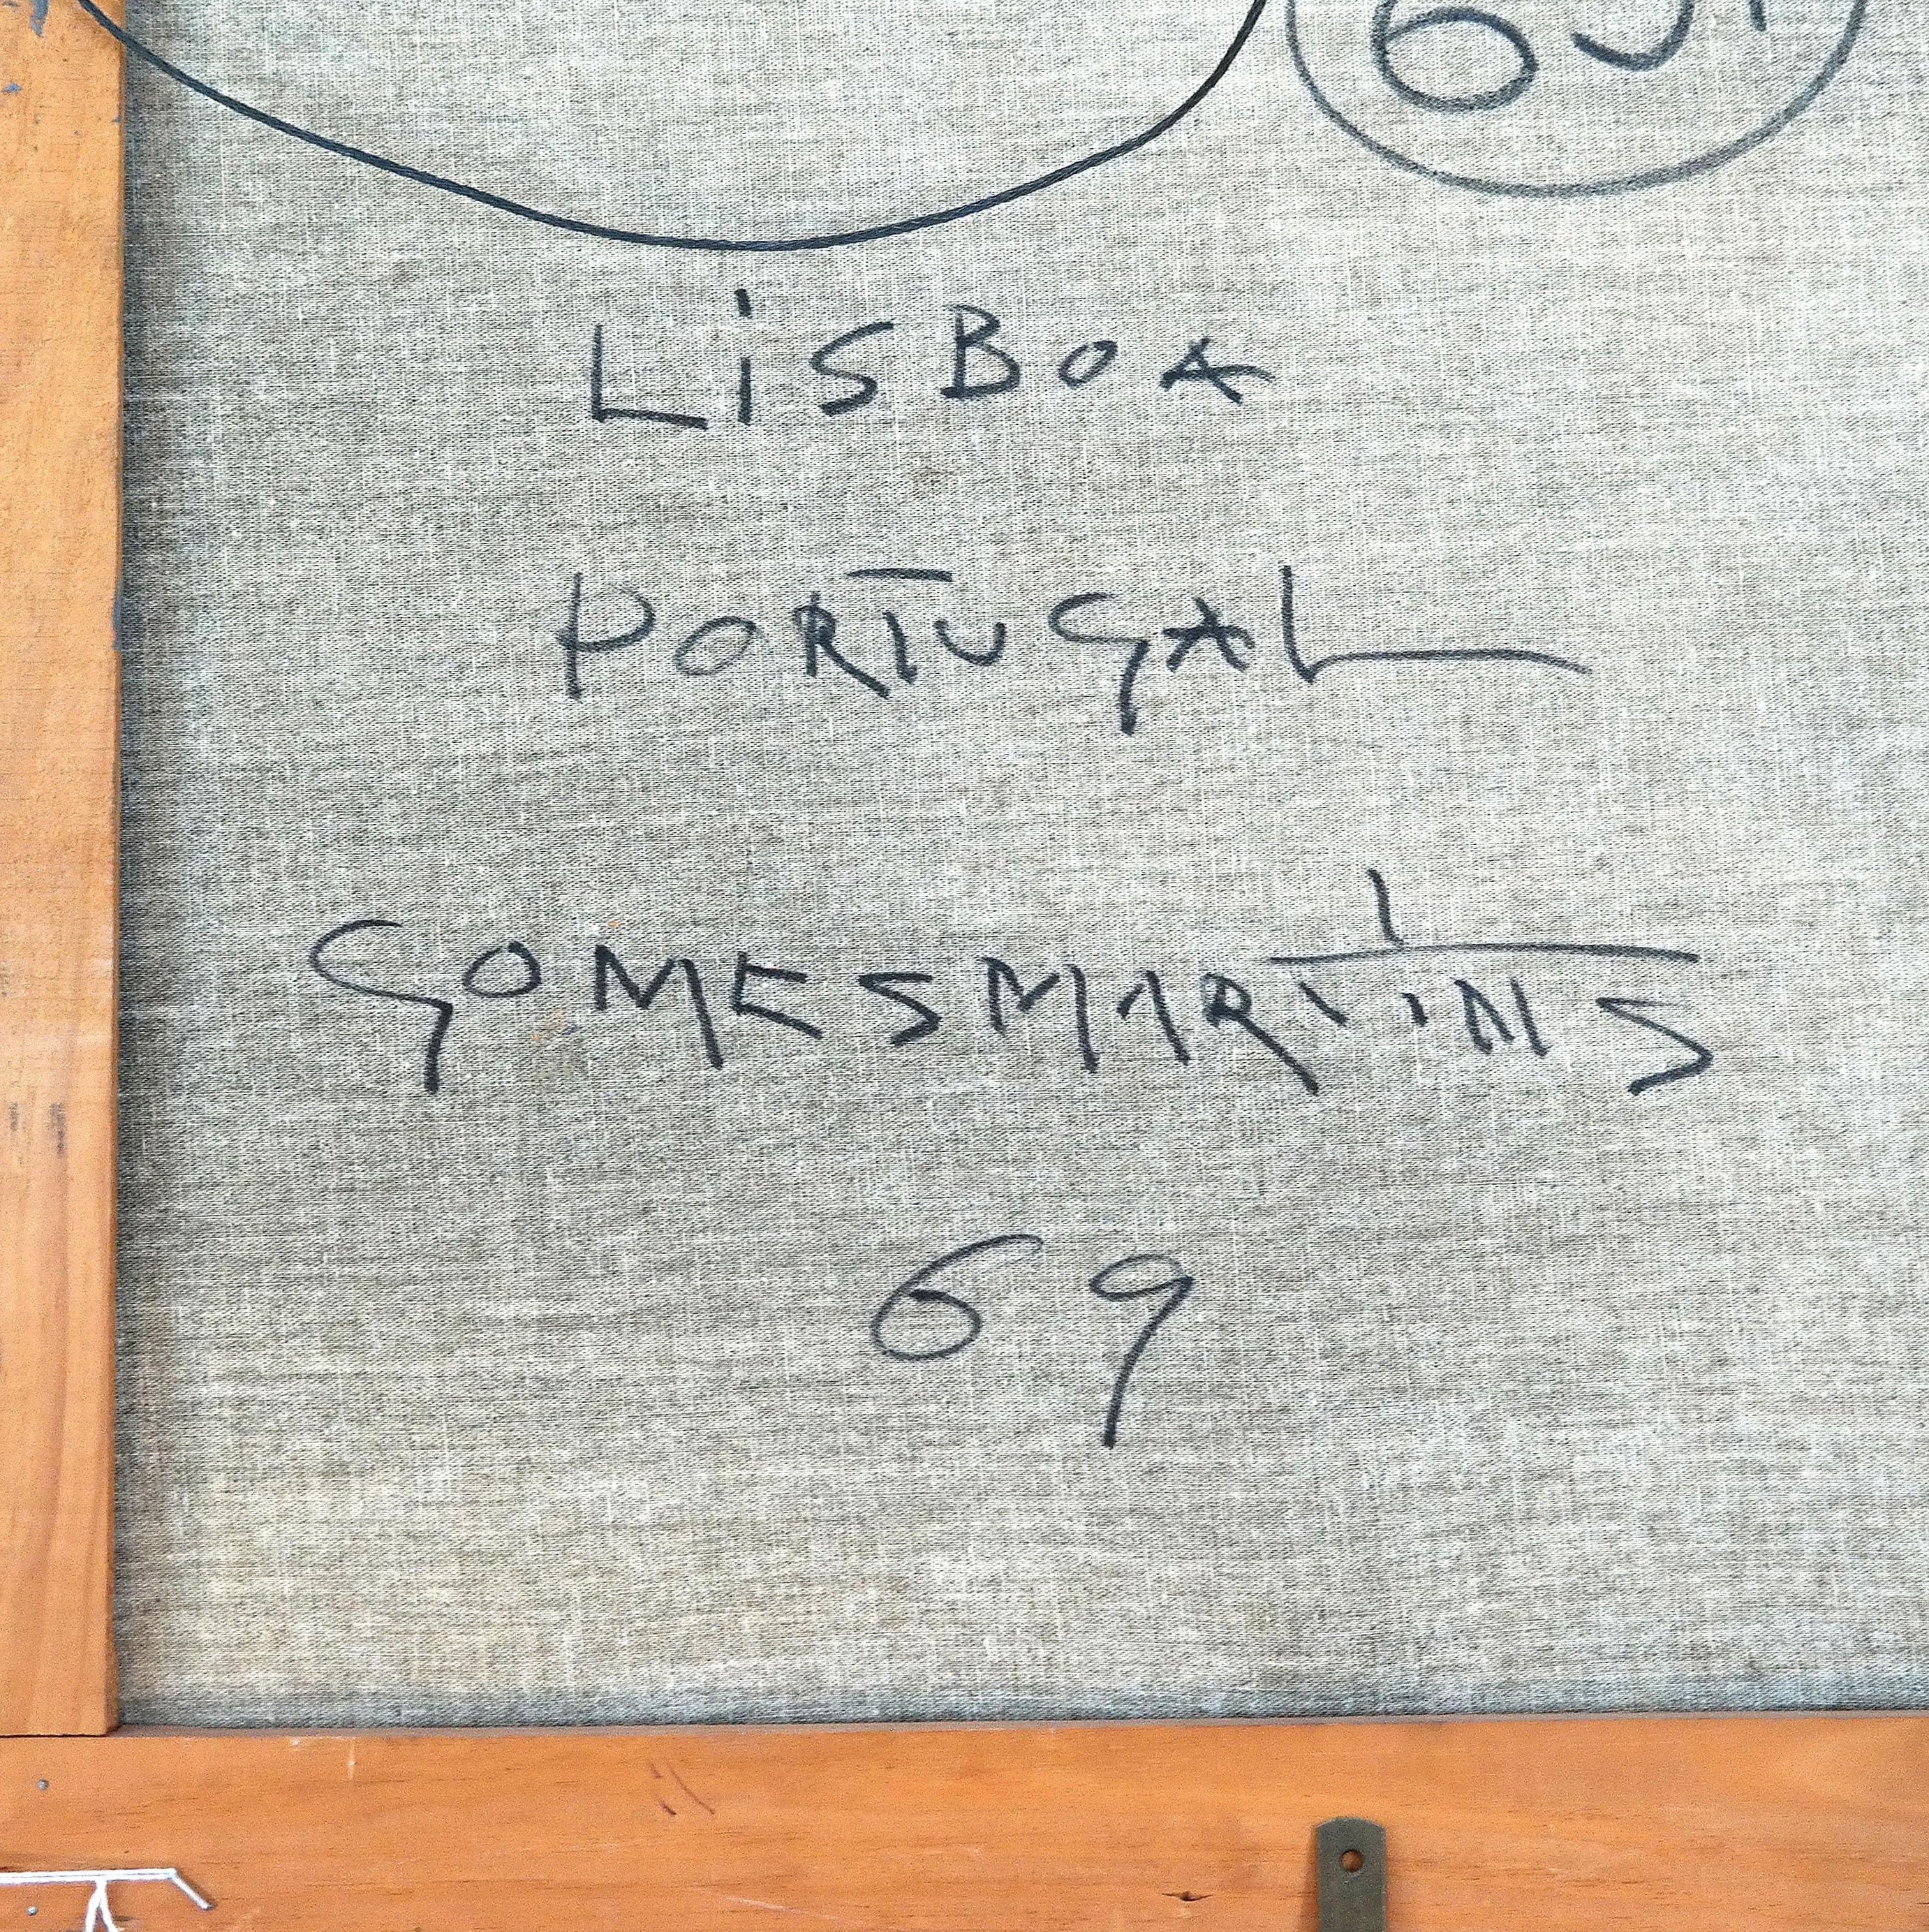 LiSBOA
PORTUGAL
GOMESMARTINS
69